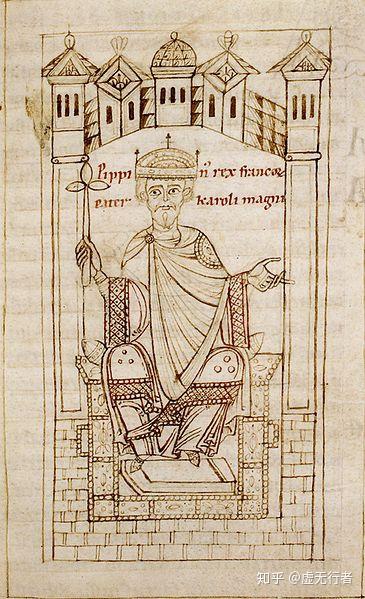 Pippi nꝰ rex francoꝝ
pater karoli magni
知乎 @虚无行者